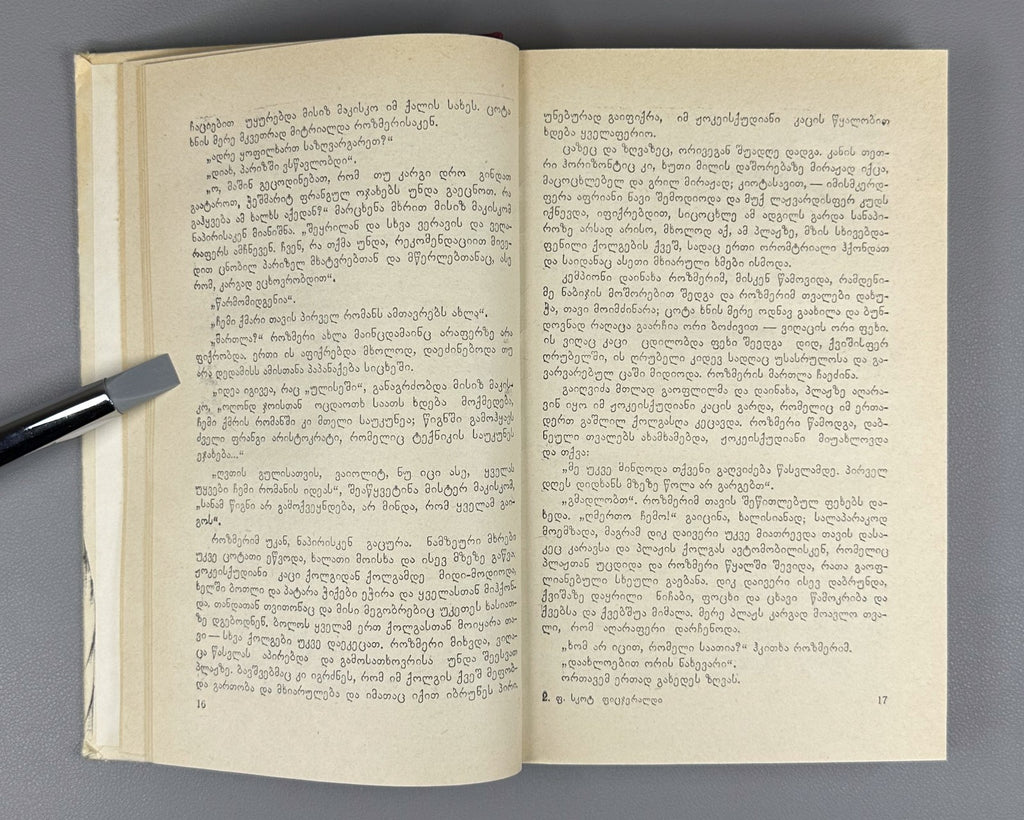 ჩაციებით უყურებდა მისიზ მაკისკო იმ ქალის სახეს. ცოტა
ხნის მერე მკვეთრად მიტრიალდა როზმერისაკენ.
„ადრე ყოფილხართ საზღვარგარეთ?“
„დიახ, პარიზში ვსწავლობდი“.
„ო, მაშინ გეცოდინებათ, რომ თუ კარგი დრო გინდათ
გაატაროთ, ჭეშმარიტ ფრანგულ ოჯახებს უნდა გაეცნოთ. რა
გაჰყვება ამ ხალხს აქედან?“ მარცხენა მხრით მისიზ მაკისკომ
ნაპირისაკენ მიანიშნა. „შეყრილან და სხვა ვერავის და ვეღა-
რაფერს ამჩნევენ. ჩვენ, რა თქმა უნდა, რეკომენდაციით მივე-
დით ცნობილ პარიზელ მხატვრებთან და მწერლებთანაც, ასე
რომ, კარგად ვცხოვრობდით“.
„წარმომიდგენია“.
„ჩემი ქმარი თავის პირველ რომანს ამთავრებს ახლა“.
„მართლა?“ როზმერი ახლა მაინცდამაინც არაფერზე არა
ფიქრობდა. ერთი ის აფიქრებდა მხოლოდ, დაეძინებოდა თუ
არა დედამისს ამისთანა პაპანაქება სიცხეში.
„იდეა იგივეა, რაც „ულისეში“, განაგრძობდა მისიზ მაკის-
კო, „ოღონდ ჯოისთან ოცდაოთხ საათს ხდება მოქმედება,
ჩემი ქმრის რომანში კი მთელი საუკუნეა; წიგნში გამოჰყავს
ძველი ფრანგი არისტოკრატი, რომელიც ტექნიკის საუკუნეს
ეჯახება...“
„ღვთის გულისათვის, ვაიოლიტ, ნუ იცი ასე, ყველას
უყვები ჩემი რომანის იდეას“, შეაწყვეტინა მისტერ მაკისკომ,
„სანამ წიგნი არ გამოქვეყნდება, არ მინდა, რომ ყველამ გაი-
გოს“.
როზმერიმ უკან, ნაპირისკენ გაცურა. ნამზეური მხრები
უკვე ცოტათი ეწვოდა, ხალათი მოისხა და ისევ მზეზე გაწვა.
ჟოკეისქუდიანი კაცი ქოლგიდან ქოლგამდე მიდი-მოდიოდა,
ხელში ბოთლი და პატარა ჭიქები ეჭირა და ყველასთან მიჰქონ-
და, თანდათან თვითონაც და მისი მეგობრებიც უკეთეს ხასიათ-
ზე დგებოდნენ. ბოლოს ყველამ ერთ ქოლგასთან მოიყარა თა-
ვი — სხვა ქოლგები უკვე დაეკეცათ. როზმერი მიხვდა, ვიღა-
ცა წასვლას აპირებდა და გამოსათხოვრისა უნდა შეესვათ
პლაჟზე. ბავშვებმაც კი იგრძნეს, რომ იმ ქოლგის ქვეშ მეფობ-
და გართობა და მხიარულება და იმათაც იქით იბრუნეს პირი.
16
უნებურად გაიფიქრა, იმ ჟოკეისქუდიანი კაცის წყალობით
ხდება ყველაფერიო.
ცაზეც და ზღვაზეც, ორივეგან შუადღე დადგა. კანის თეთ-
რი ჰორიზონტიც კი, ხუთი მილის დაშორებაზე მირაჟად იქცა,
მაცოცხლებელ და გრილ მირაჟად; კიოტასავით, — იმისმკერდ-
ფერა აფრიანი ნავი შემოდიოდა და მუქ ლაჟვარდისფერ კუდს
იქნევდა, იფიქრებდით, სიცოცხლე ამ ადგილს გარდა სანაპი-
როზე არსად არისო, მხოლოდ აქ, ამ პლაჟზე, მზის სხივებდა-
ფენილი ქოლგების ქვეშ, სადაც ერთი ორომტრიალი ჰქონდათ
და საიდანაც ასეთი მხიარული ხმები ისმოდა.
კემპიონი დაინახა როზმერიმ, მისკენ წამოვიდა, რამდენი-
მე ნაბიჯის მოშორებით შედგა და როზმერიმ თვალები დახუ-
ჭა, თავი მოიმძინარა; ცოტა ხნის მერე ოდნავ გაახილა და ბუნ-
დოვნად რაღაცა გაარჩია ორი ბოძივით — ვიღაცის ორი ფეხი.
ის ვიღაც კაცი ცდილობდა ფეხი შეედგა დიდ, ქვიშისფერ
ღრუბელში, ის ღრუბელი კიდევ სადღაც უსასრულოსა და გა-
ვარვარებულ ცაში მიდიოდა. როზმერის მართლა ჩაეძინა.
გაიღვიძა მთლად გაოფლილმა და დაინახა, პლაჟზე აღარა-
ვინ იყო იმ ჟოკეისქუდიანი კაცის გარდა, რომელიც იმ ერთა-
დერთ გაშლილ ქოლგასღა კეცავდა. როზმერი წამოდგა, დაბ-
ნეული თვალებს ახამხამებდა, ჟოკეისქუდიანი მიუახლოვდა
და თქვა:
„მე უკვე მინდოდა თქვენი გაღვიძება წასვლამდე. პირველ
დღეს დიდხანს მზეზე წოლა არ გარგებთ“.
„გმადლობთ“. როზმერიმ თავის შეწითლებულ ფეხებს და-
ხედა. „ღმერთო ჩემო!“ გაიცინა, ხალისიანად; სალაპარაკოდ
მოემზადა, მაგრამ დიკ დაივერი უკვე მიათრევდა თავის დასა-
კეც კარავსა და პლაჟის ქოლგას ავტომობილისკენ, რომელიც
პლაჟთან უცდიდა და როზმერი წყალში შევიდა, რათა გაოფ-
ლიანებული სხეული გაებანა. დიკ დაივერი ისევ დაბრუნდა,
ქვიშაზე დაყრილი ნიჩაბი, ფოცხი და ცხავი წამოკრიბა და
ქვებსა და ქვებშუა მიმალა. მერე პლაჟს კარგად მოავლო თვა-
ლი, რომ აღარაფერი დარჩენოდა.
„ხომ არ იცით, რომელი საათია?“ ჰკითხა როზმერიმ.
„დაახლოებით ორის ნახევარი“.
ორთავემ ერთად გახედეს ზღვას.
2. ფ. სკოტ ფიცჯერალდი
17